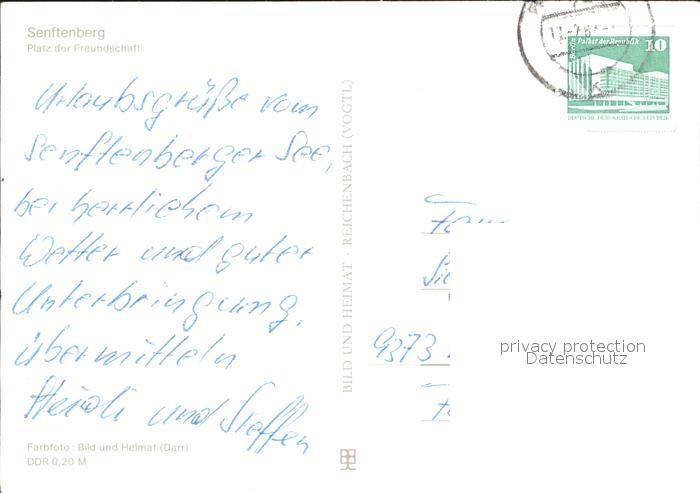 Senftenberg
Platz der Freundschaft
Urlaubsgrüße vom
Senftenberger See,
bei herrlichem
Wetter und guter
Unterbringung,
übermitteln
Heidi und Steffen
Farbfoto: Bild und Heimat (Darr)
DDR 0,20 M
BILD UND HEIMAT · REICHENBACH (VOGTL)
Berlin Palast der Republik 10
DEUTSCHE DEMOKRATISCHE REPUBLIK
Fam
9373
privacy protection
Datenschutz